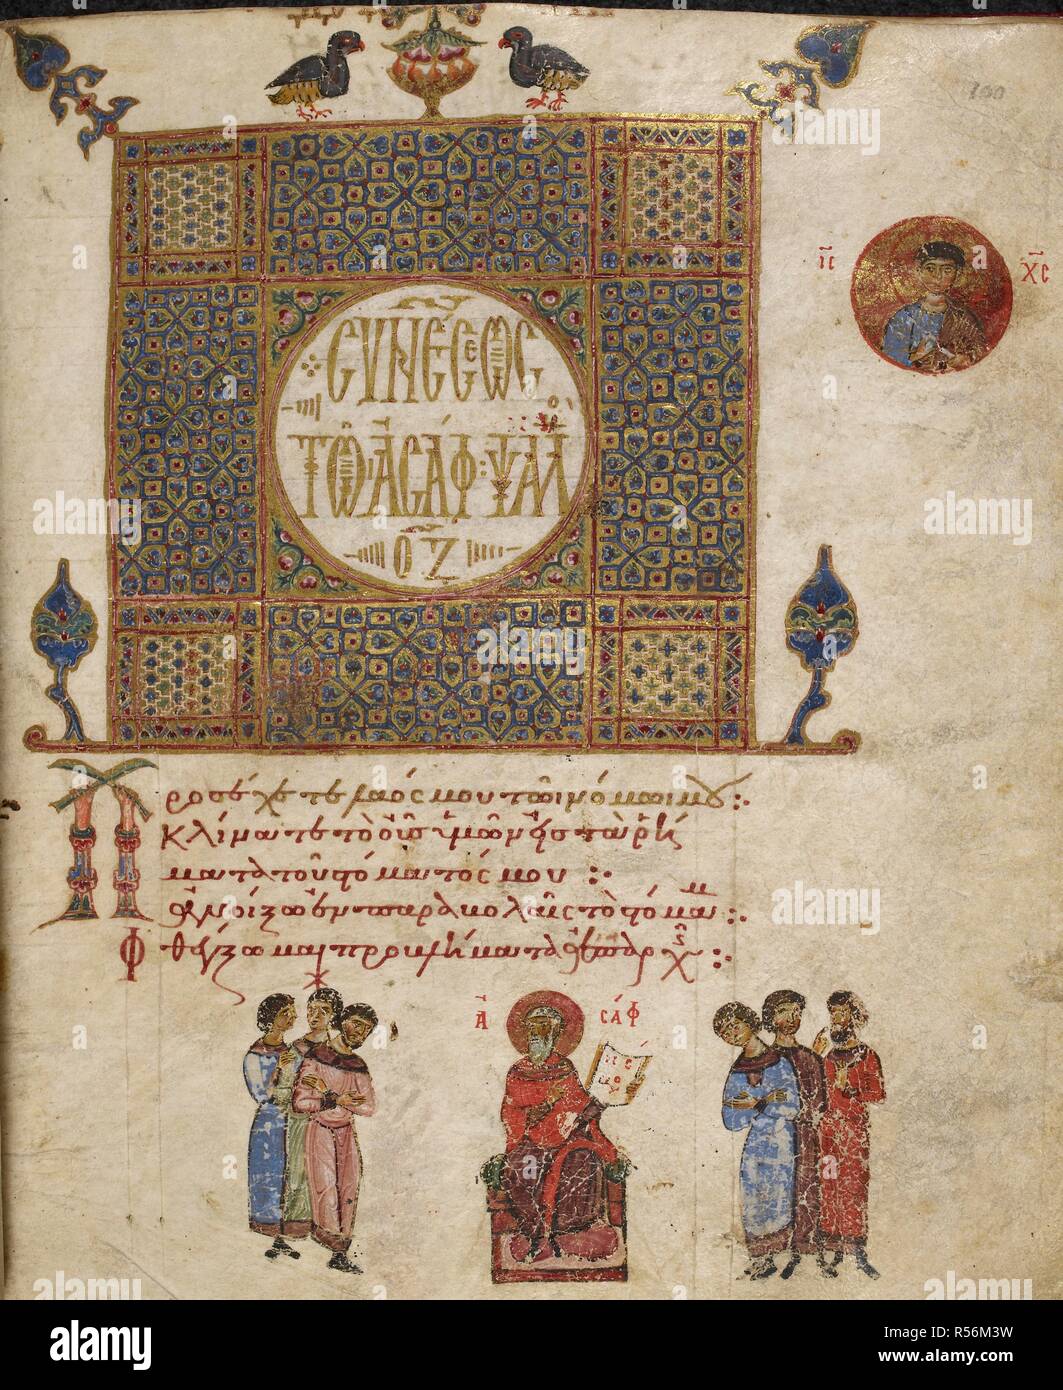 100
ΙC ΧC
CΥΝΕCΕΩC
ΤΩ ΑCΑΦ ΨΑΛ
ΟΖ
Προσέχετε λαός μου τῶ νόμω μου:
κλίνατε τὸ οὖς ὑμῶν εἰς τὰ ῥή
ματα τοῦ στόματός μου:
ἀνοίξω ἐν παραβολαῖς τὸ στόμα μ:
φθέγξομαι προβλήματα ἀπ ἀρχῆς:
ΑCΑΦ
alamy
Image ID: R56M3W
www.alamy.com